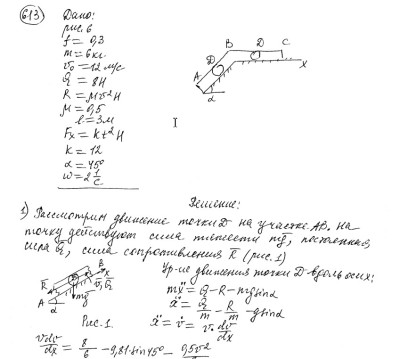 613 Дано:
рис. 6
f = 0,3
m = 6 кг
v₀ = 12 м/с
Q = 8Н
R = μv²Н
μ = 0,5
l = 3м
Fx = kt²Н
k = 12
α = 45°
ω = 2 1/с
A D B D C x α
Решение:
1) Рассмотрим движение точки D на участке AB. На
точку действуют сила тяжести mg, постоянная
сила Q, сила сопротивления R (рис. 1)
Ур-ие движения точки D вдоль осих:
mẍ = Q - R - mg sinα
ẍ = Q/m - R/m - g sinα
Рис. 1. ẍ = v̇ = v·dv/dx
vdv/dx = 8/6 - 9,81 sin45° - 0,5v²